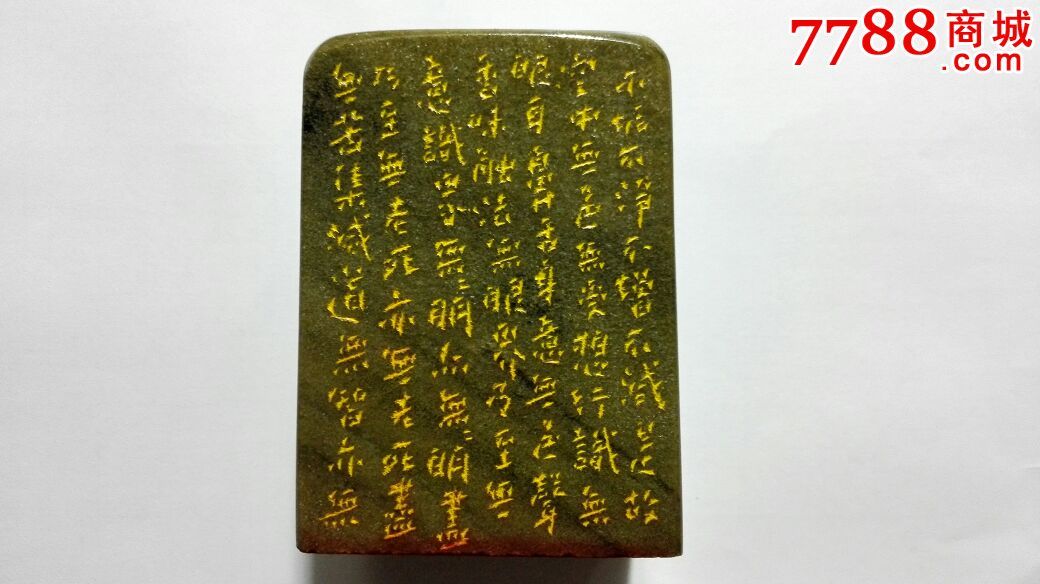 不垢不淨不增不減是故
空中無色無受想行識無
眼耳鼻舌身意無色聲
香味觸法無眼界乃至無
意識界無〻明亦無〻明盡
乃至無老死亦無老死盡
無苦集滅道無智亦無
7788商城
.com